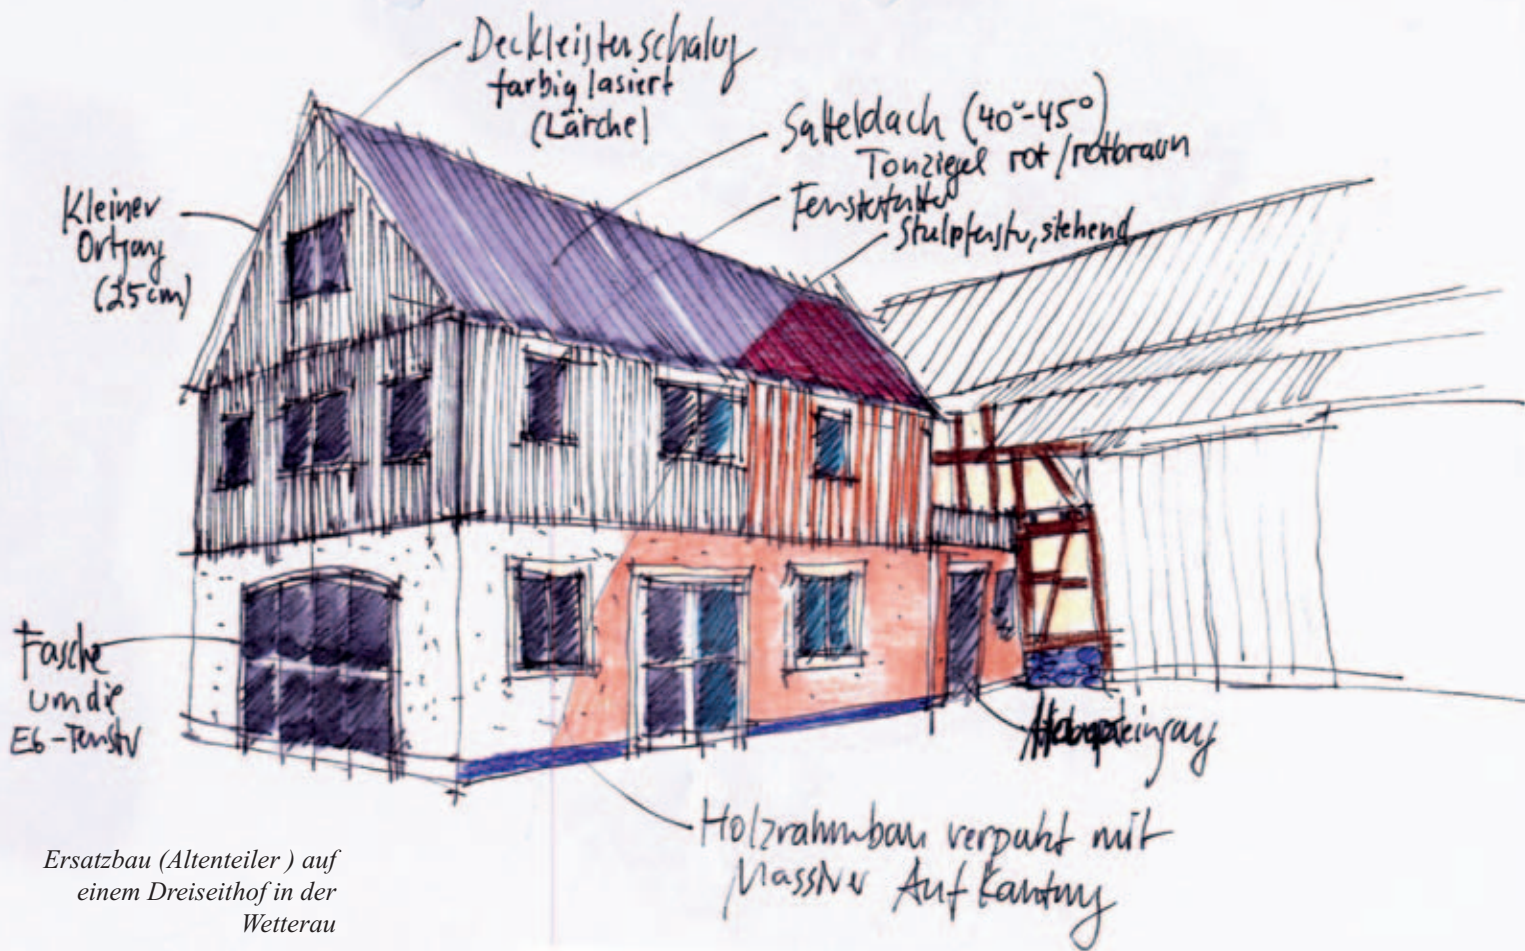 Deckleistenschalung
farbig lasiert
(Lärche)
Satteldach (40°-45°)
Tonziegel rot/rotbraun
Stulpfenster, stehend
Kleiner
Ortgang
(25cm)
Fasche
um die
EG-Fenster
Holzrahmbau verputzt mit
Massiver Aufkantung
Ersatzbau (Altenteiler ) auf
einem Dreiseithof in der
Wetterau